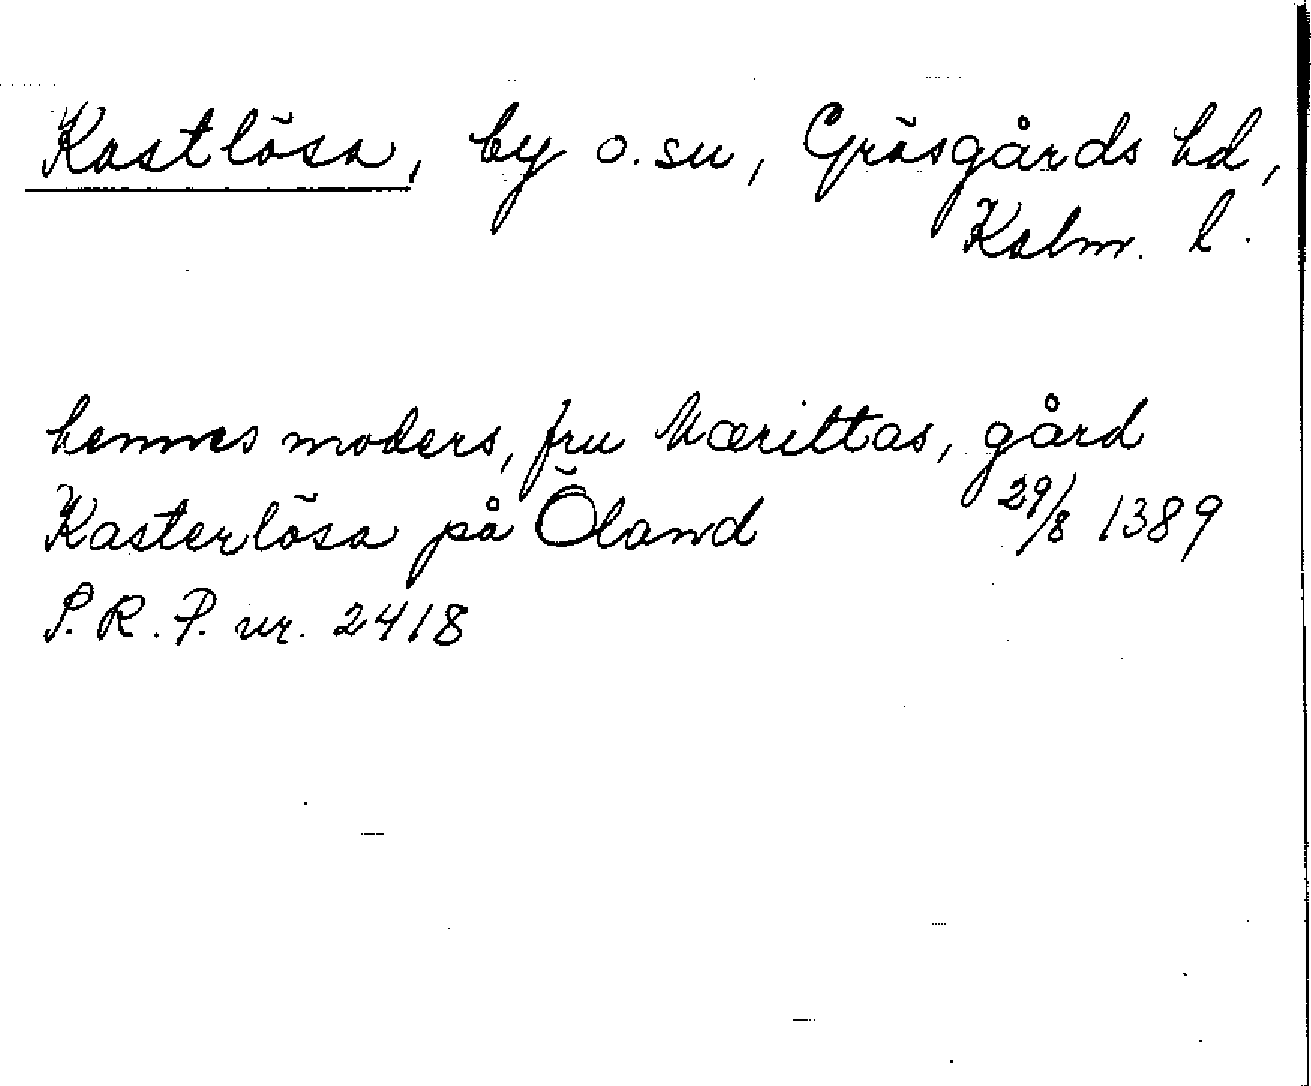 Kastlösa, by o. sn, Gräsgårds hd,
Kalm. l.
hennes moders, fru Mærittas, gård
Kasterlösa på Öland 29/8 1389
S.R.P. nr. 2418